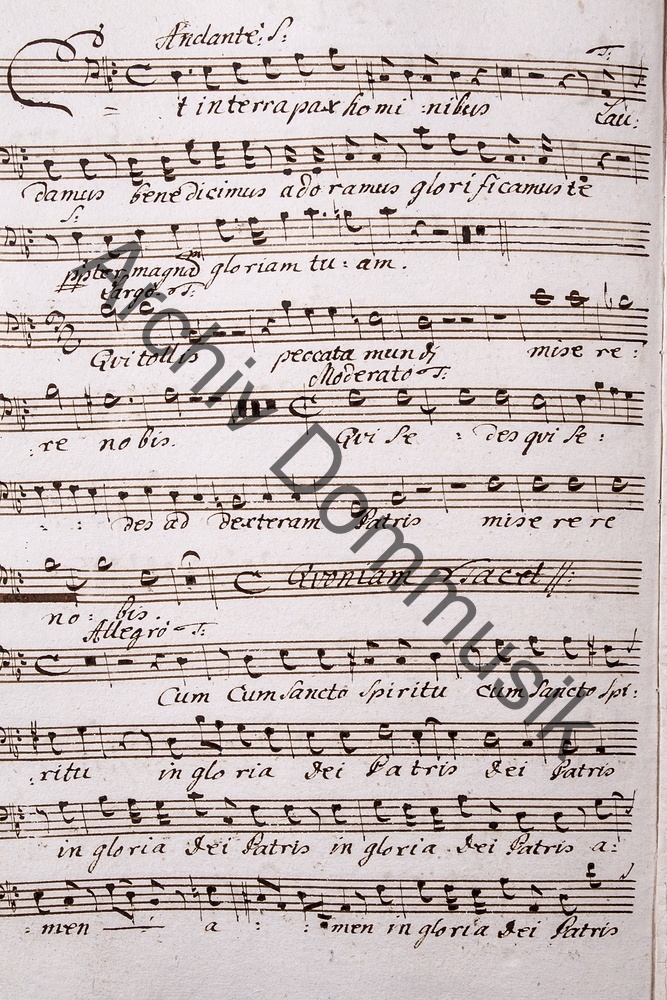 Andante: S: T:
t in terra pax homi : nibus Lau:
damus benedicimus adoramus glorificamus te
S:
ppter magnā gloriam tu: am.
Largo T:
Qui tollis peccata mundj mise re:
Moderato T:
:re nobis. Qui Se : des qui se:
: : des ad dexteram Patris mise re re
Quoniam Tacet
no: bis.
Allegro T:
Cum Cum Sancto Spiritu cum Sancto Spi:
:ritu in gloria Dei Patris Dei Patris
in gloria Dei Patris in gloria Dei Patris a:
men a : : men in gloria Dei Patris
Archiv Dommusik